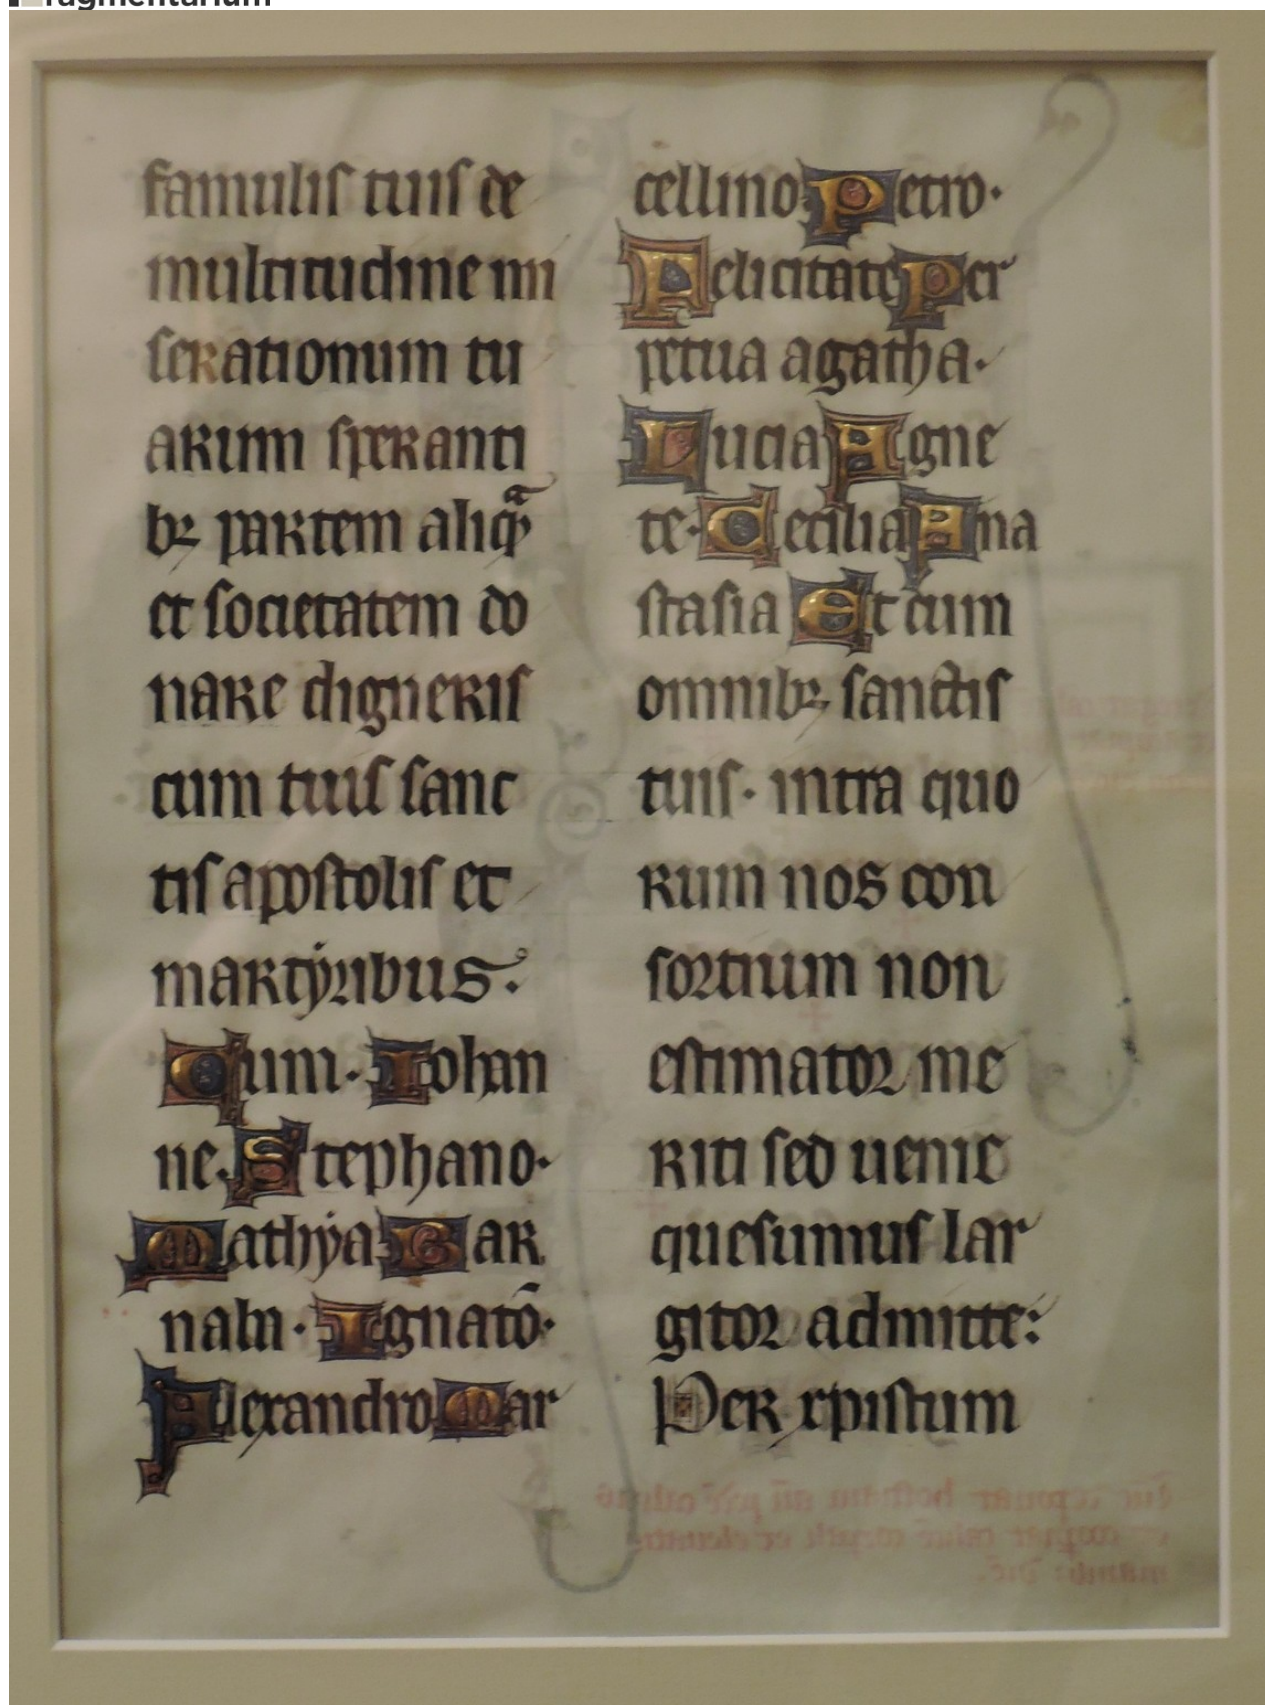 ragmentarium
famulis tuis de
multitudine mi
serationum tu
arum speranti
bꝫ partem aliqͣ
et societatem do
nare digneris
cum tuis sanc
tis apostolis et
martyribus.
Cum· Iohan
ne· Stephano·
Mathya Bar
nabi· Ignatō·
Alexandro Mar
cellino Petro·
Felicitate Per
petua agatha·
Lucia Agne
te· Cecilia Ana
stasia Et cum
omnibꝫ sanctis
tuis· intra quo
rum nos con
sortium non
estimator me
riti sed uenie
quesumus lar
gitor admitte:
Per xpistum